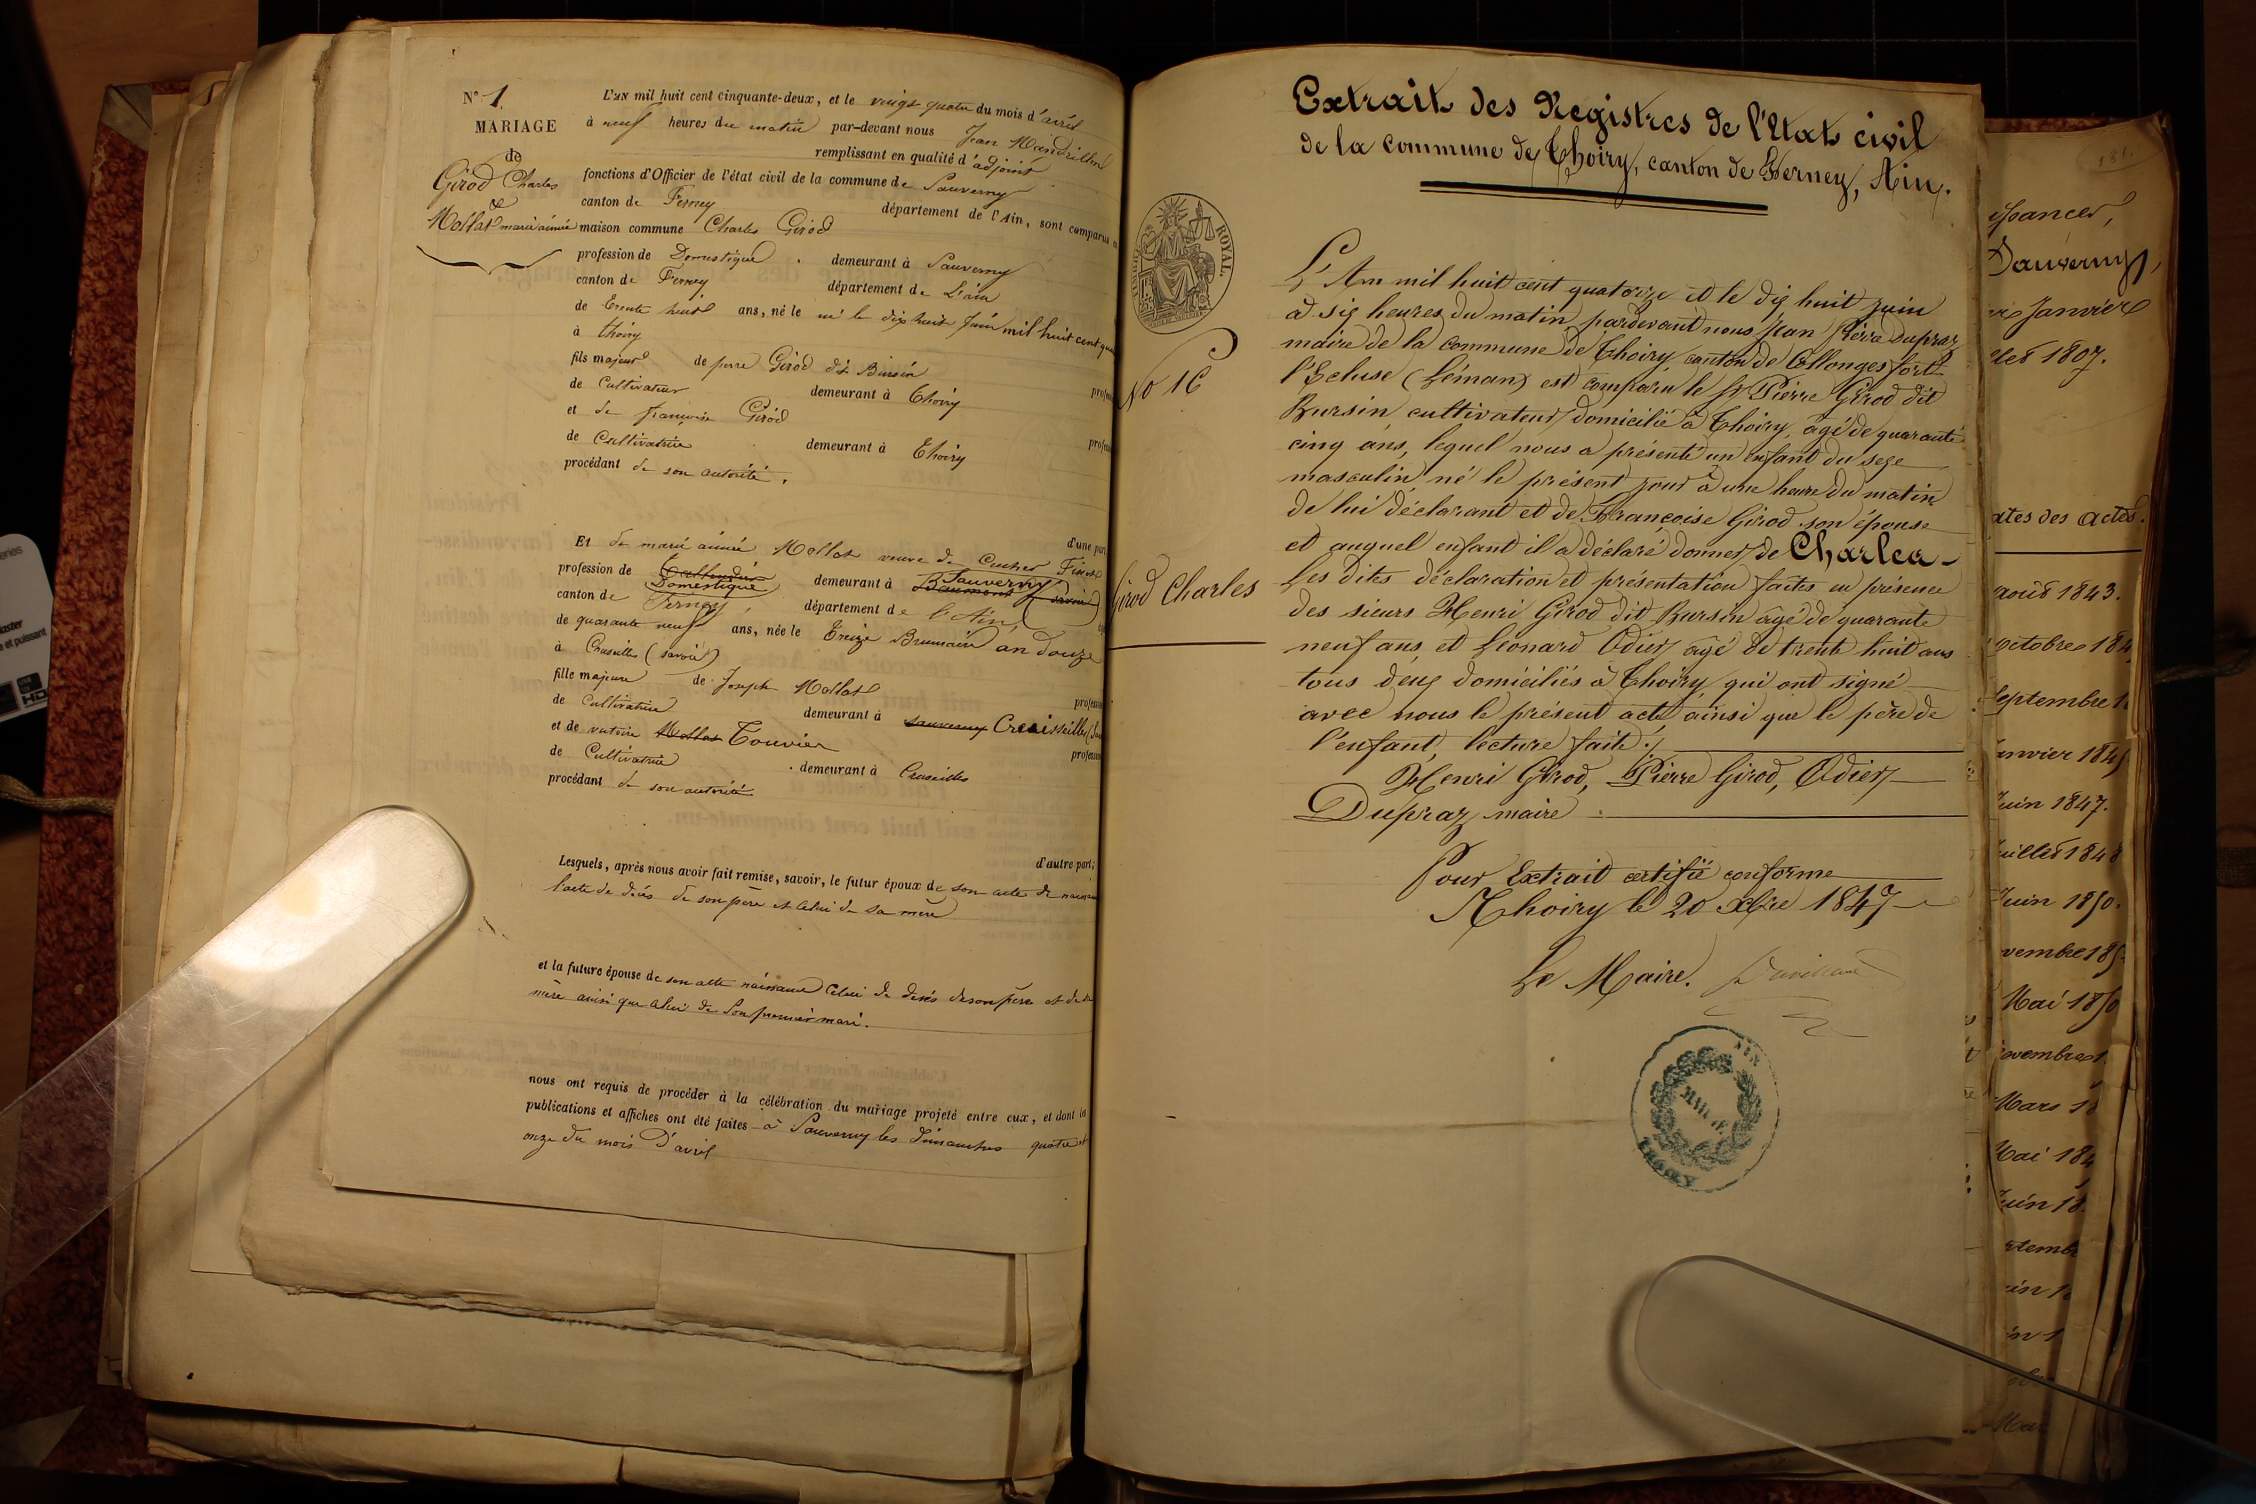 N° 1
MARIAGE
de
Girod Charles
&
Mollat marie aimée
L'AN mil huit cent cinquante-deux, et le vingt quatre du mois d'avril
à neuf heures du matin par-devant nous Jean Mandrillon
remplissant en qualité d'adjoint
fonctions d'Officier de l'état civil de la commune de Sauverny
canton de Ferney département de l'Ain, sont comparus
maison commune Charles Girod
profession de Domestique demeurant à Sauverny
canton de Ferney département de L'ain
de trente huit ans, né le né le dix huit Juin mil huit cent
à thoiry
fils majeur de pierre Girod dit Bursin
de Cultivateur demeurant à Thoiry
et de françoise Girod
de Cultivatrice demeurant à Thoiry
procédant de son autorité.
d'une part
Et de marie aimée Mollat veuve de
profession de Domestique demeurant à Sauverny
canton de Ferney, département de l'Ain,
de quarante neuf ans, née le treize Brumaire an douze
à Cruseilles (savoie)
fille majeure de Joseph Mollat
de Cultivateur demeurant à sauverny Cruisseilles
et de Mollat Touvier
de Cultivatrice demeurant à Cruseilles
procédant de son autorité
d'autre part;
Lesquels, après nous avoir fait remise, savoir, le futur époux de son acte de
l'acte de décès de son père et celui de sa mère
et la future épouse de son acte naissance celui de décès de son père et de
mère ainsi que celui de son premier mari.
nous ont requis de procéder à la célébration du mariage projeté entre eux, et dont les
publications et affiches ont été faites à Sauverny les dimanches quatre et
onze du mois d'avril
Extrait des Registres de l'Etat civil
de la commune de Thoiry, canton de Ferney, Ain.
ROYAL
No 16
Girod Charles
L'An mil huit cent quatorze et le dix huit juin
à six heures du matin pardevant nous Jean Pierre Dupraz
maire de la commune de Thoiry canton de Collonges fort
l'Ecluse (Léman) est comparu le Sr Pierre Girod dit
Bursin, cultivateur domicilié à Thoiry, âgé de quarante
cinq ans, lequel nous a présenté un enfant du sexe
masculin né le présent jour à une heure du matin
de lui déclarant et de Françoise Girod son épouse
et auquel enfant il a déclaré donner de Charles
Les dites déclaration et présentation faites en présence
des sieurs Henri Girod dit Bursin âgé de quarante
neuf ans, et Léonard Odier âgé de trente huit ans
tous deux domiciliés à Thoiry, qui ont signé
avec nous le présent acte ainsi que le père de
l'enfant, lecture faite.
Henri Girod, Pierre Girod, Odier
Dupraz maire
Pour Extrait certifié conforme
Thoiry le 20 Xbre 1847
Le Maire.
AIN
MAIRIE
THOIRY
Sauverny,
Janvier
1807.
ates des actes.
août 1843.
octobre 184
septembre 1
anvier 184
Juin 1847.
uillet 1848
Juin 1850.
vembre 185
Mai 1850
ovembre 1
Mars 18
Mai 184
Juin 18